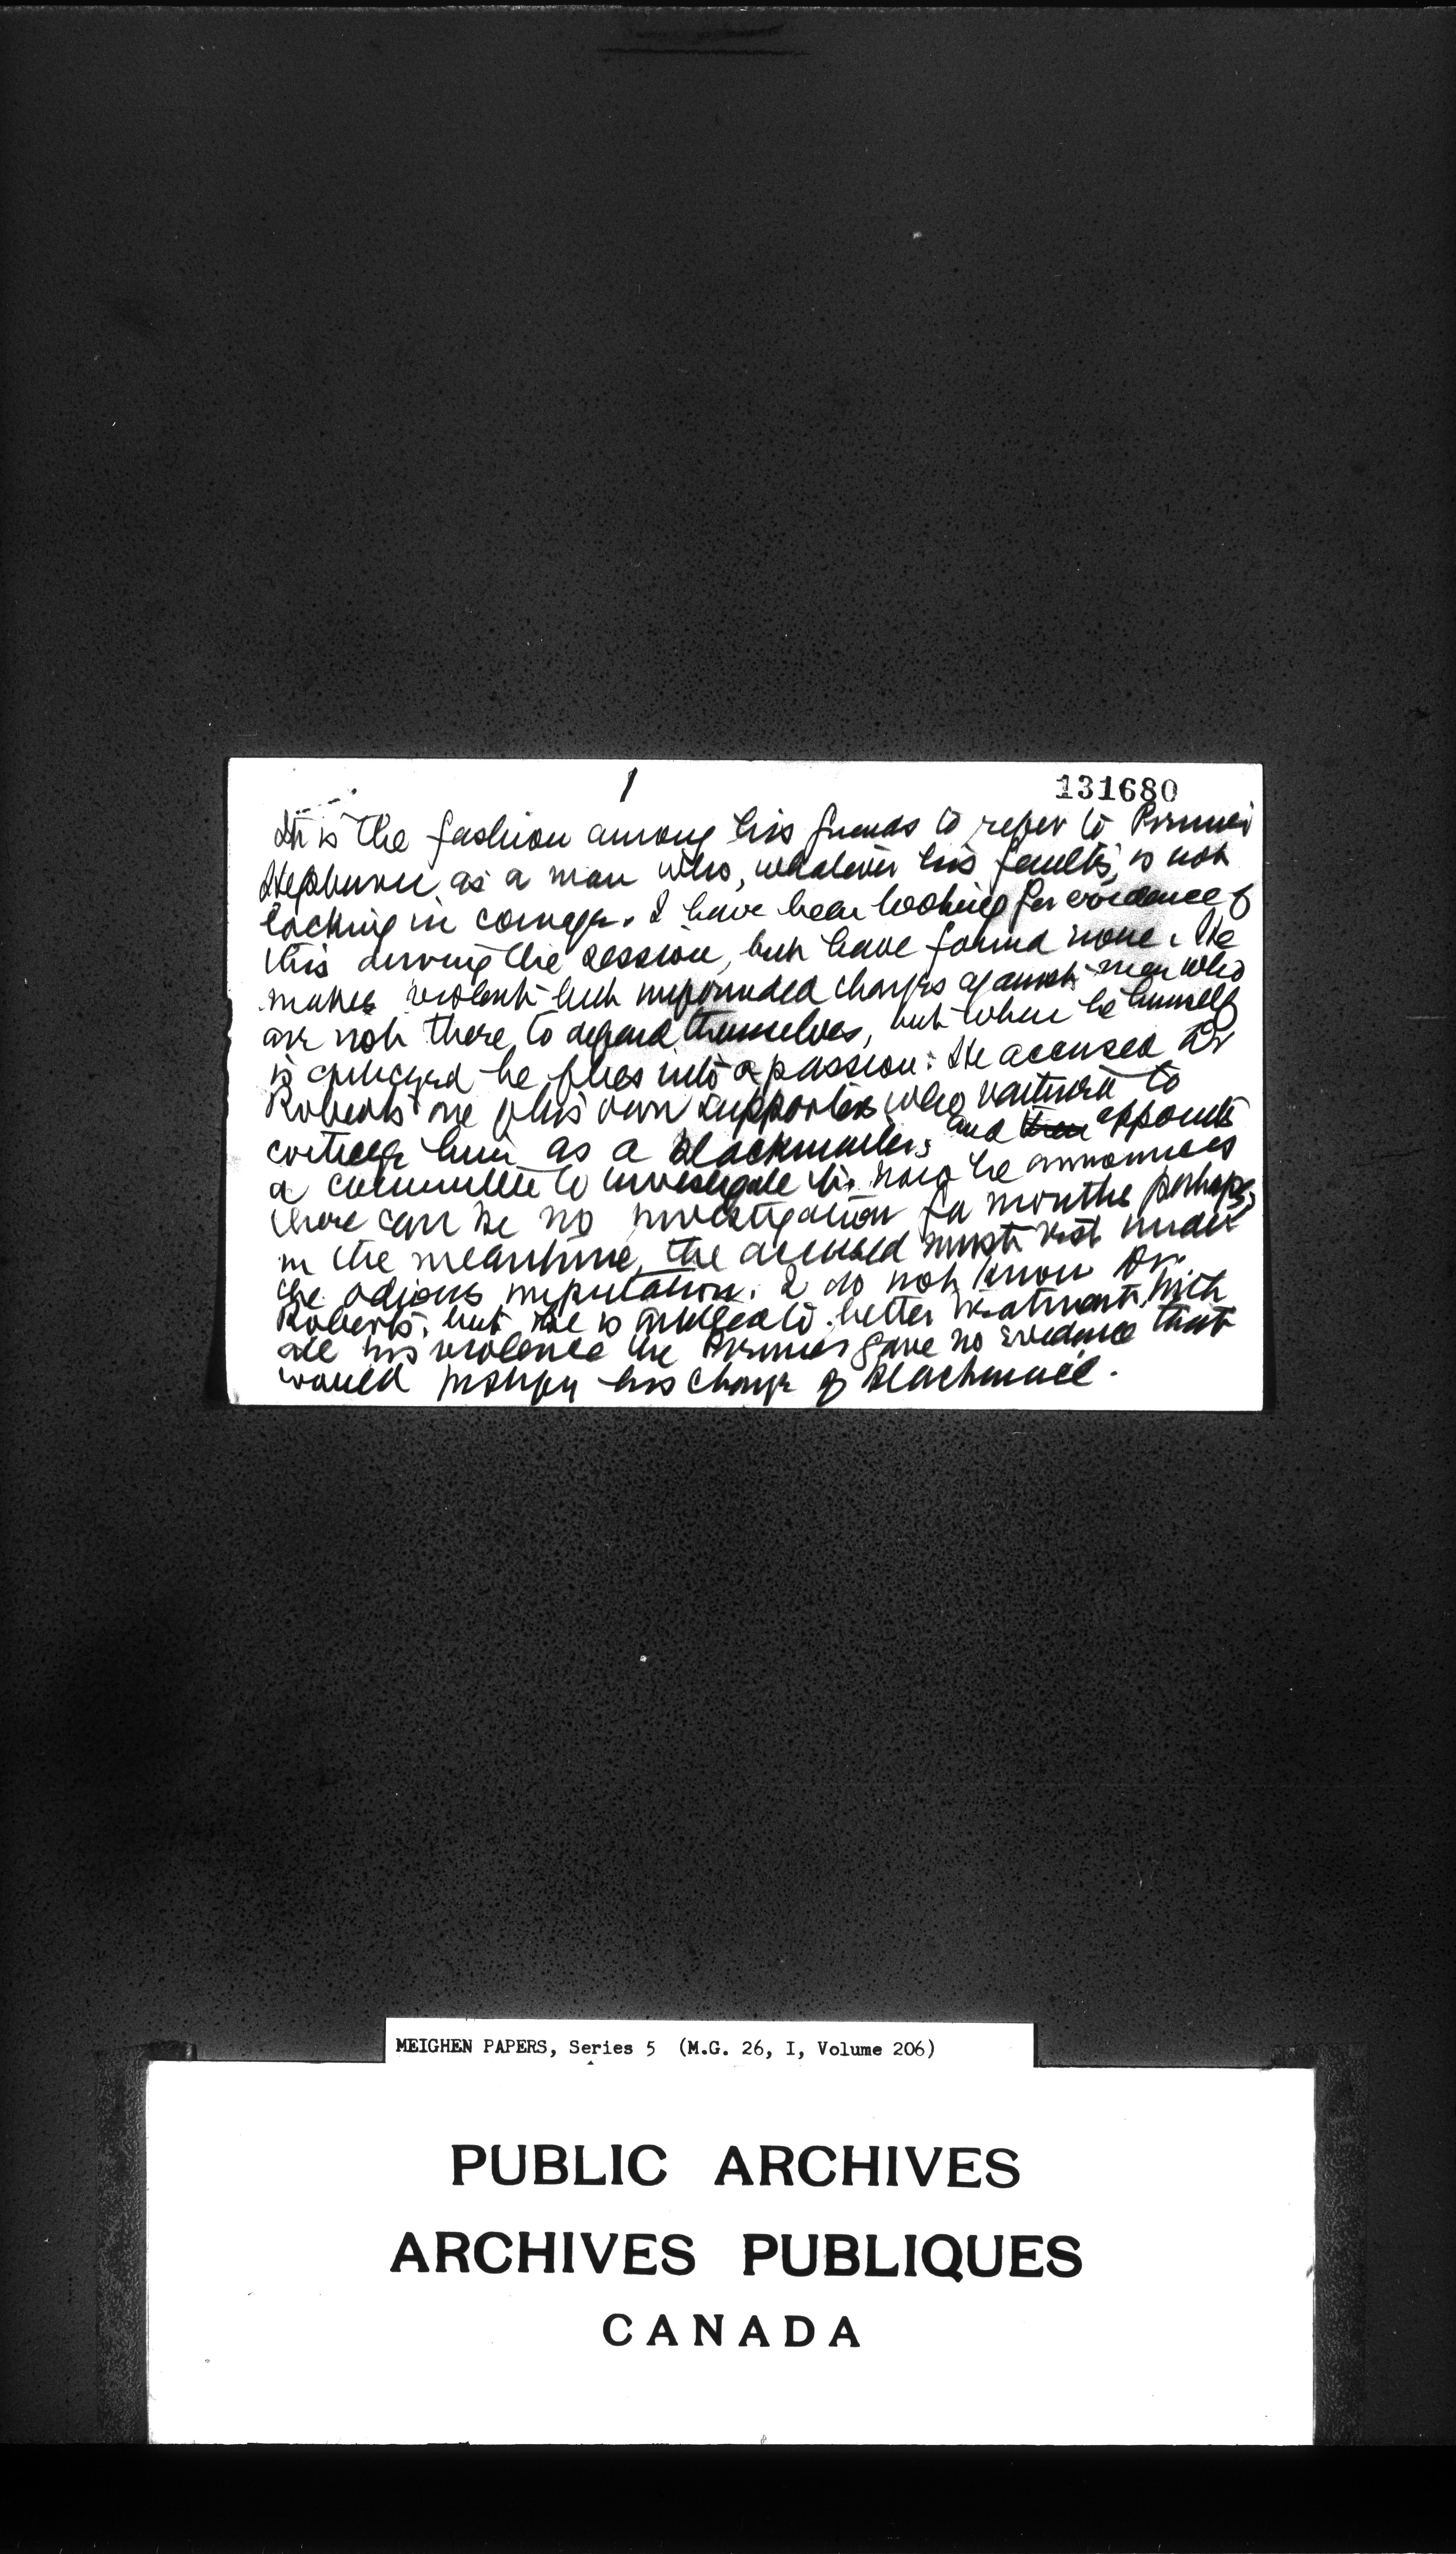 1
131680
It is the fashion among his friends to refer to Premier
Hepburn as a man who, whatever his faults, is not
lacking in courage. I have been looking for evidence of
this during the session, but have found none. He
makes violent but unfounded charges against men who
are not there to defend themselves, but when he himself
is criticized he flies into a passion: He accused Dr
Roberts one of his own supporters who ventured to
criticize him as a blackmailer; and then appoints
a committee to investigate it. Now he announces
there can be no investigation for months perhaps,
in the meantime, the accused must rest under
the odious imputation. I do not know Dr.
Roberts, but he is entitled to better treatment. With
all his violence the Premier gave no evidence that
would justify his charge of blackmail.
MEIGHEN PAPERS, Series 5 (M.G. 26, I, Volume 206)
PUBLIC ARCHIVES
ARCHIVES PUBLIQUES
CANADA